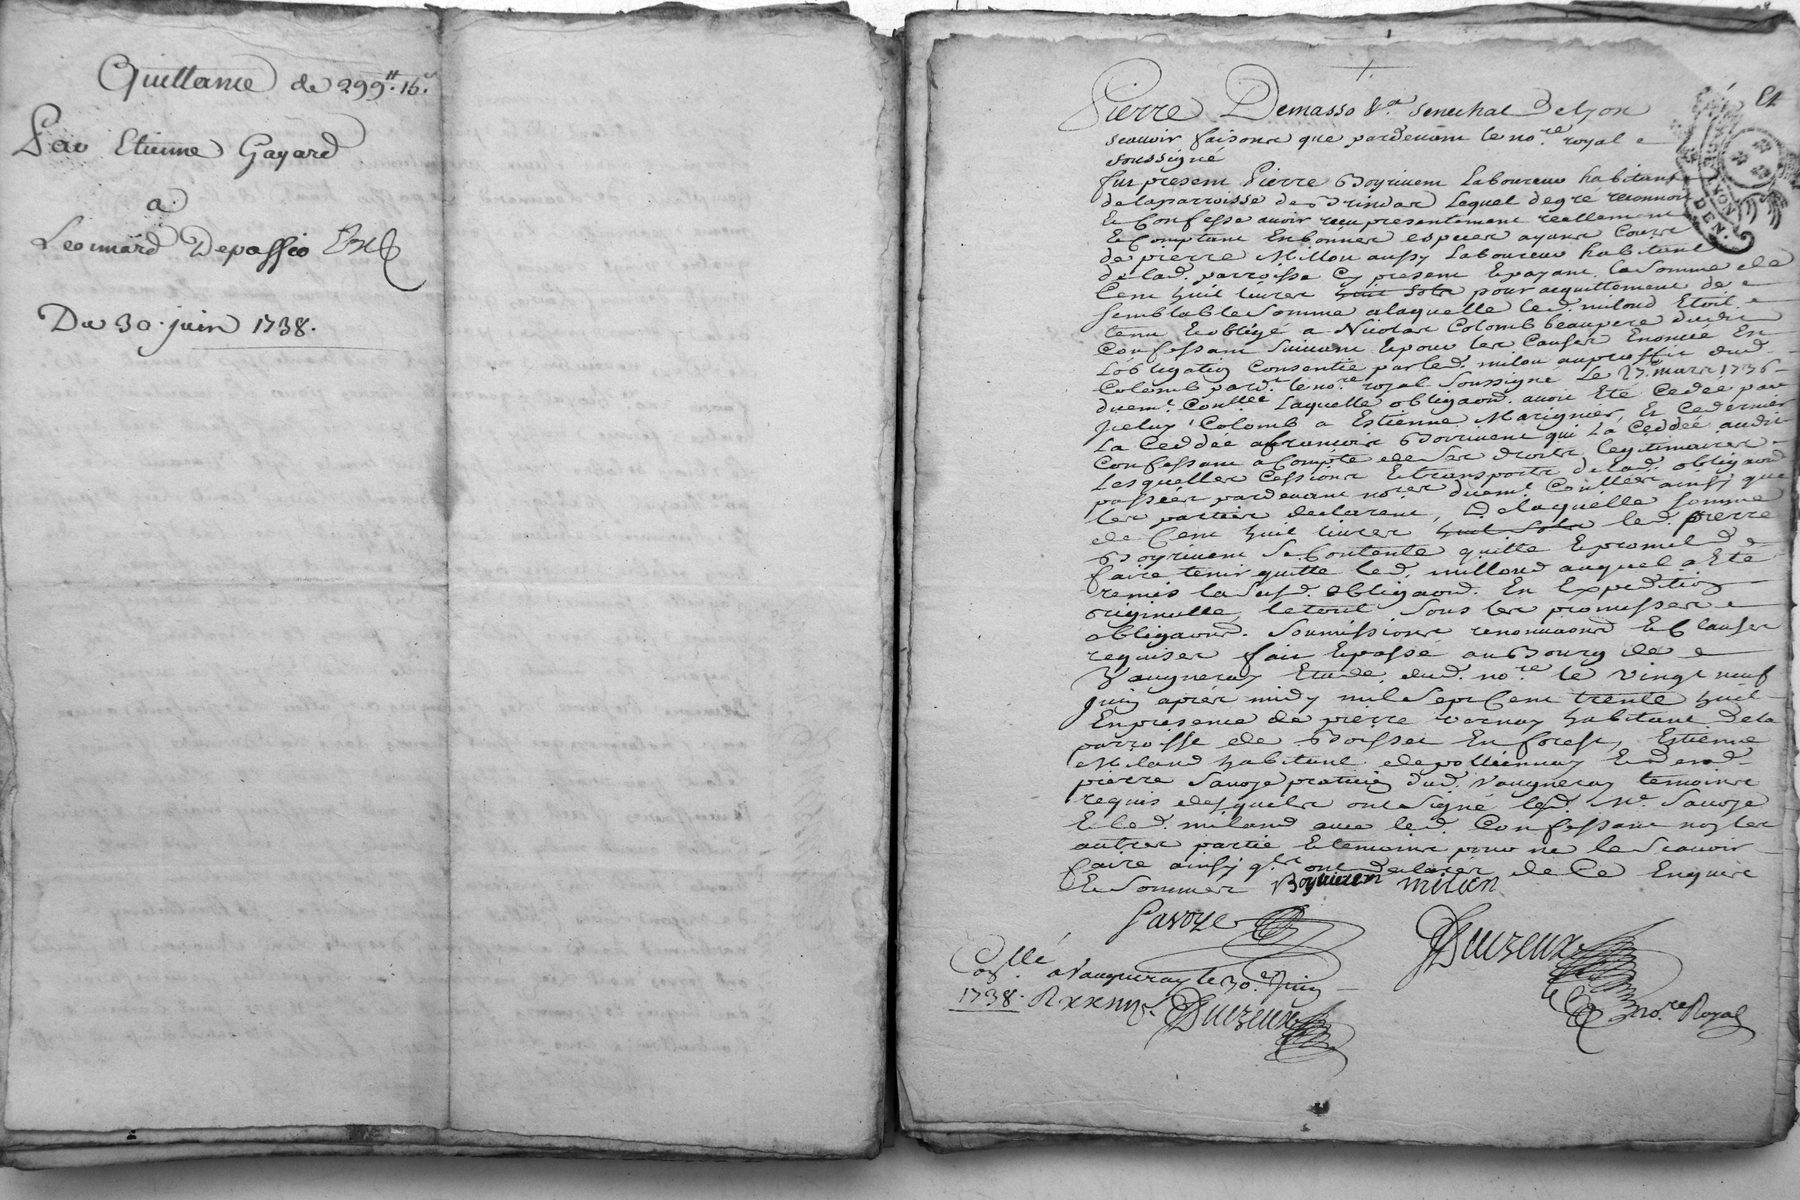 Quittance de 299 ₶. 15 s.
Par Etienne Gayard
a
Leonnard Depassio
Du 30. juin 1738.
Pierre Demasso Sr. Senechal De Lyon
scavoir faisons que pardevant le nore. royal
soussigné
fut present Pierre Boyrivent Laboureur habitant
de la parroisse de Brindas Lequel de gré reconnoit
Et Confesse avoir reçu presentement reellement
Et Comptant En bonnes especes ayant Cours
de pierre Millou aussy Laboureur habitant
de lad. parroisse Cy present Et payant la somme de
Cent huit livres huit sols pour acquittement de
semblable somme a laquelle led. miloud Etoit
tenu Et obligé a Nicolas Colomb beaupere dudit
Confessant suivant Et pour les Causes Enoncée En
L'obligation Consentie par led. milou au proffit dud.
Colomb pard. le nore. royal soussigné Le 27. mars 1736
duemt. Conllée Laquelle obligaon. avoit Eté Cedée par
iceluy Colomb a Estienne Marignier, Et Ce dernier
La Ceddée a francois Boyrivent qui La Ceddée audit
Confessant a Compte de ses droits legitimaires
Lesquelles Cessions Et transports de lad. obligaon.
passées pardevant nores duemt. Conllées ainsy que
les parties declarent, De laquelle somme
de Cent huit livres huit sols led. pierre
Boyrivent se Contente quitte Et promet de
faire tenir quitte led. milloud auquel a Eté
remis la susd. obligaon. En Expedition
originalle, le tout sous les promesses
obligaons. soumissions renonciaons Et Clauses
requises fait Et passé au Bourg de
Vaugneray Etude dud. nore. le vingt neuf
juin apres midy mil sept Cent trente huit
En presence de pierre Vernay habitant de la
parroisse de Boisset En forest, Estienne
Miland habitant de pollionnay Et de sr.
pierre Savoye praticien dud. Vaugneray temoins
requis desquels ont signé led. Sr. Savoye
Et led. miland avec led. Confessant non les
autres partie Et temoins pour ne le Scavoir
faire ainsy qls. ont declarés de Ce Enquis
Et Sommés Boyrivent milien
Savoye
Duizeux
nore. Royal
Conllé a Vaugneray le 30e. Juin
1738. R Duizeux
Et
LYON
DEN.